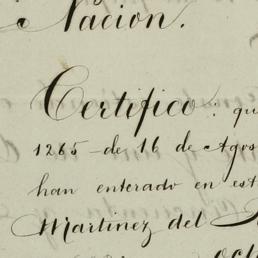 Nacion.
Certifico: qu
1265 - de 16 de Agos
han enterado en est
Martinez del
och